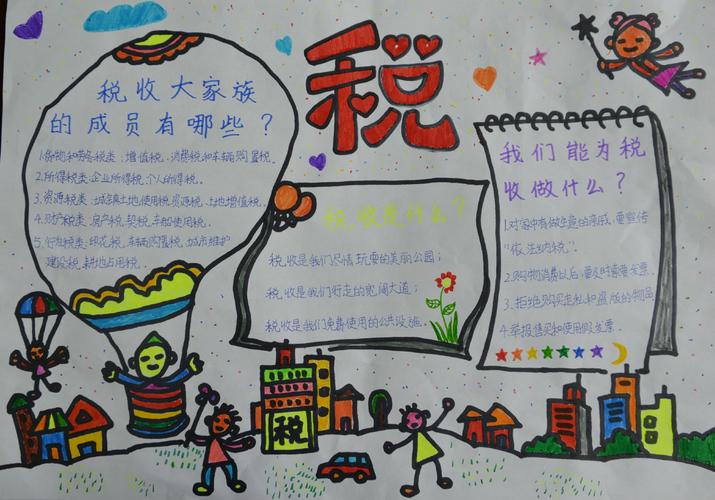 税
税收大家族
的成员有哪些?
1.货物和劳务税类:增值税、消费税和车辆购置税。
2.所得税类:企业所得税、个人所得税。
3.资源税类:城镇土地使用税、资源税、土地增值税。
4.财产税类:房产税、契税、车船使用税。
5.行为税类:印花税、车辆购置税、城市维护
建设税、耕地占用税。
税收是什么?
税收是我们尽情玩耍的美丽公园;
税收是我们行走的宽阔大道;
税收是我们免费使用的公共设施。
我们能为税
收做什么?
1.对家中有做生意的亲戚,要宣传
“依法纳税”。
2.购物消费以后,要及时索要发票。
3.拒绝购买走私和盗版的物品。
4.举报售卖和使用假发票.
税